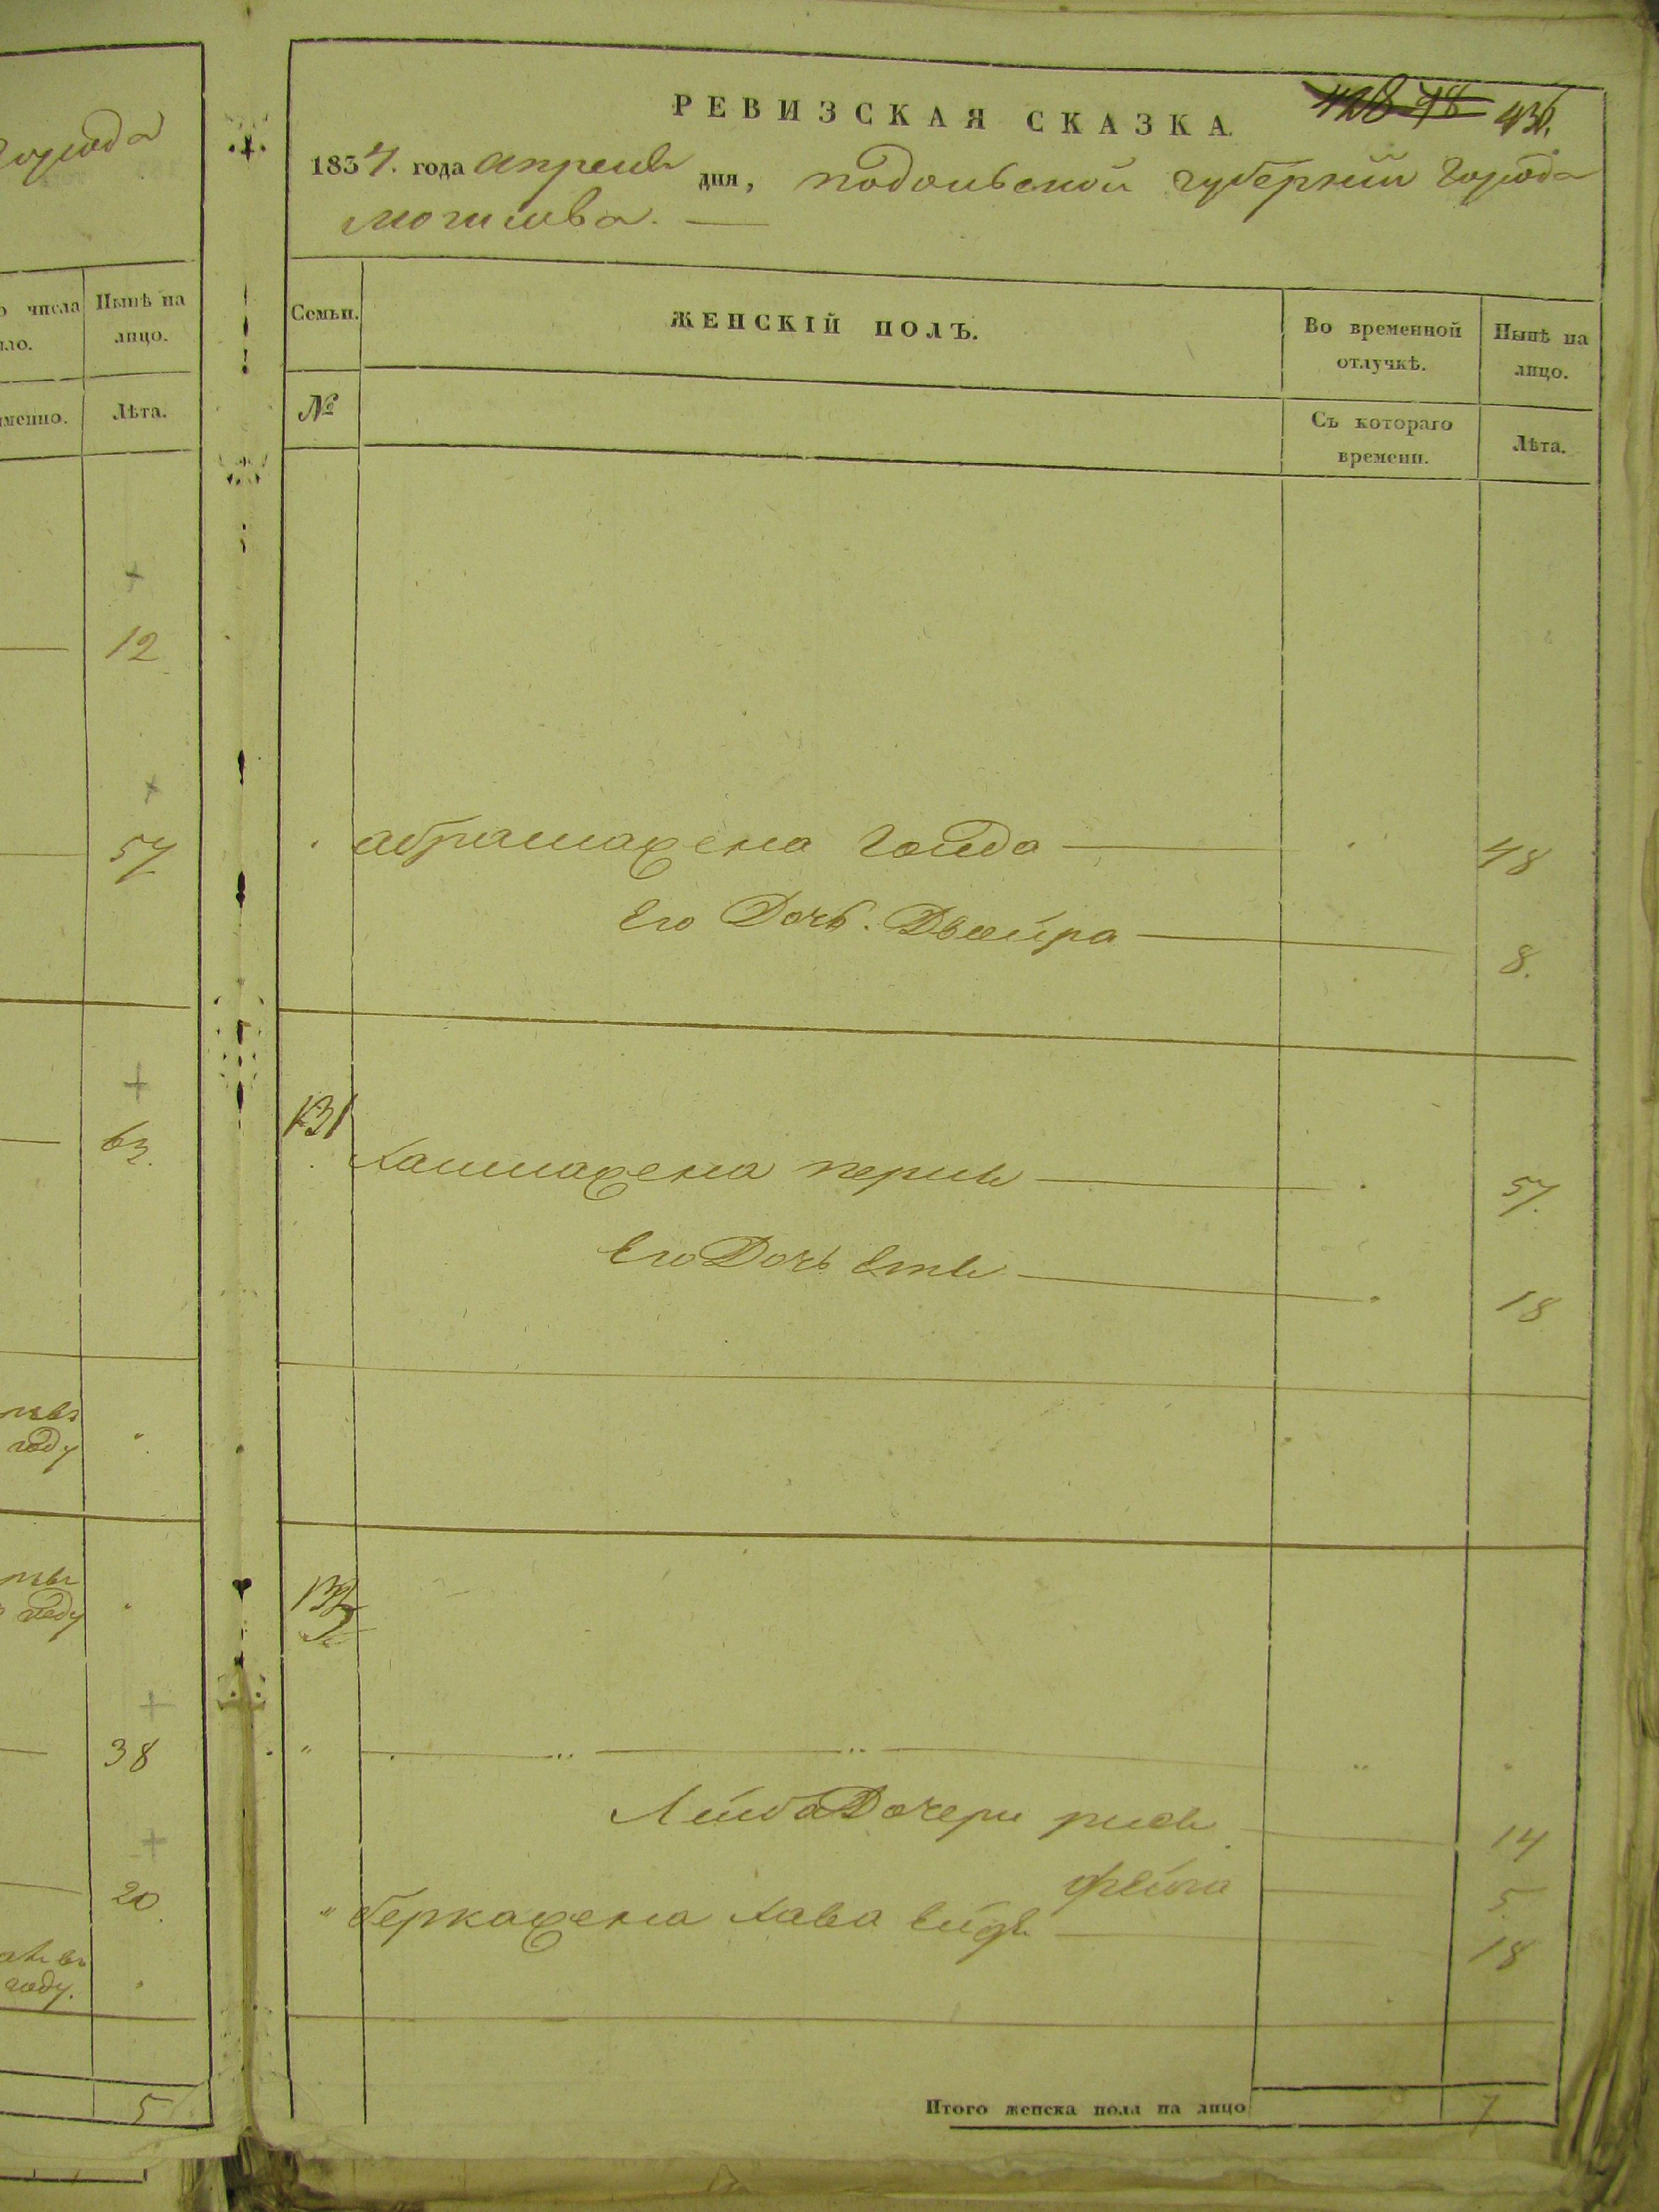 города
436.
РЕВИЗСКАЯ СКАЗКА.
1834. года апреля дня, подольской губернии города
могилева.
числа
Нынѣ на
ло.
лицо.
именно.
Лѣта.
Семьи.
ЖЕНСКІЙ ПОЛЪ.
Во временной
отлучкѣ.
Нынѣ на
лицо.
№
Съ котораго
времени.
Лѣта.
12
57
абрама жена Гольда 48
Его Дочь Двейра 8.
63.
131
Хаима жена перля 57.
Его Дочь Етя 18
году
132
году
38
Лейба Дочери рися 14
20
фейга 5
берка жена хава 18
году.
5
Итого женска пола на лицо 7